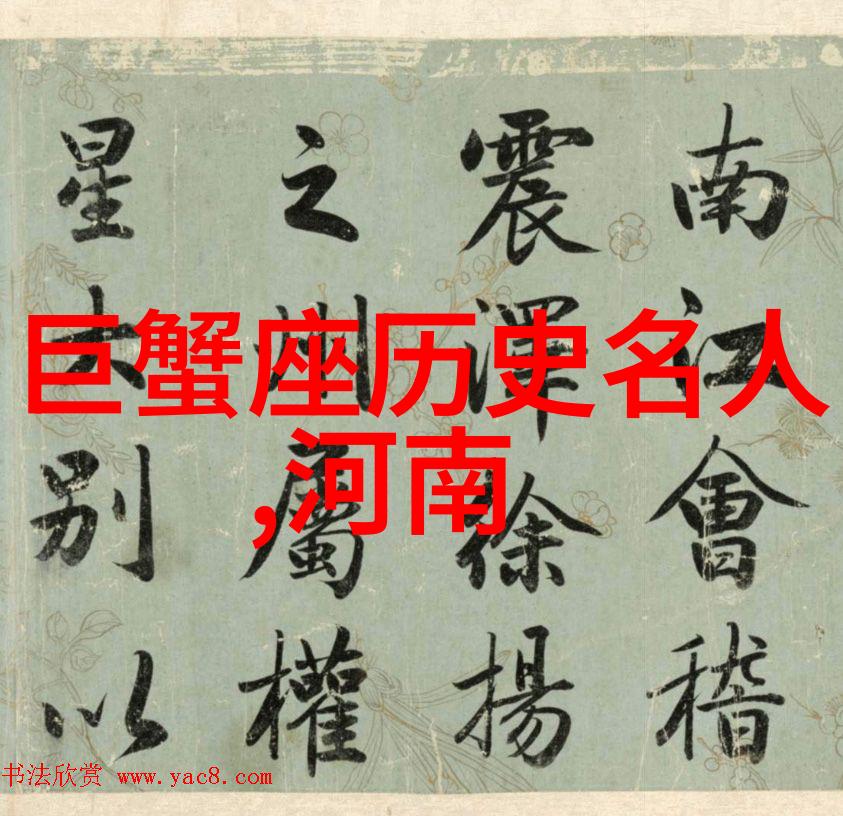 南江會稽
震澤徐揚
之州屬權
星別以
巨蟹座历史名人
,河南
书法欣赏 www.yac8.com